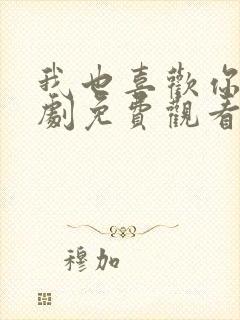 我也喜歡你
劇免費觀看
穆加